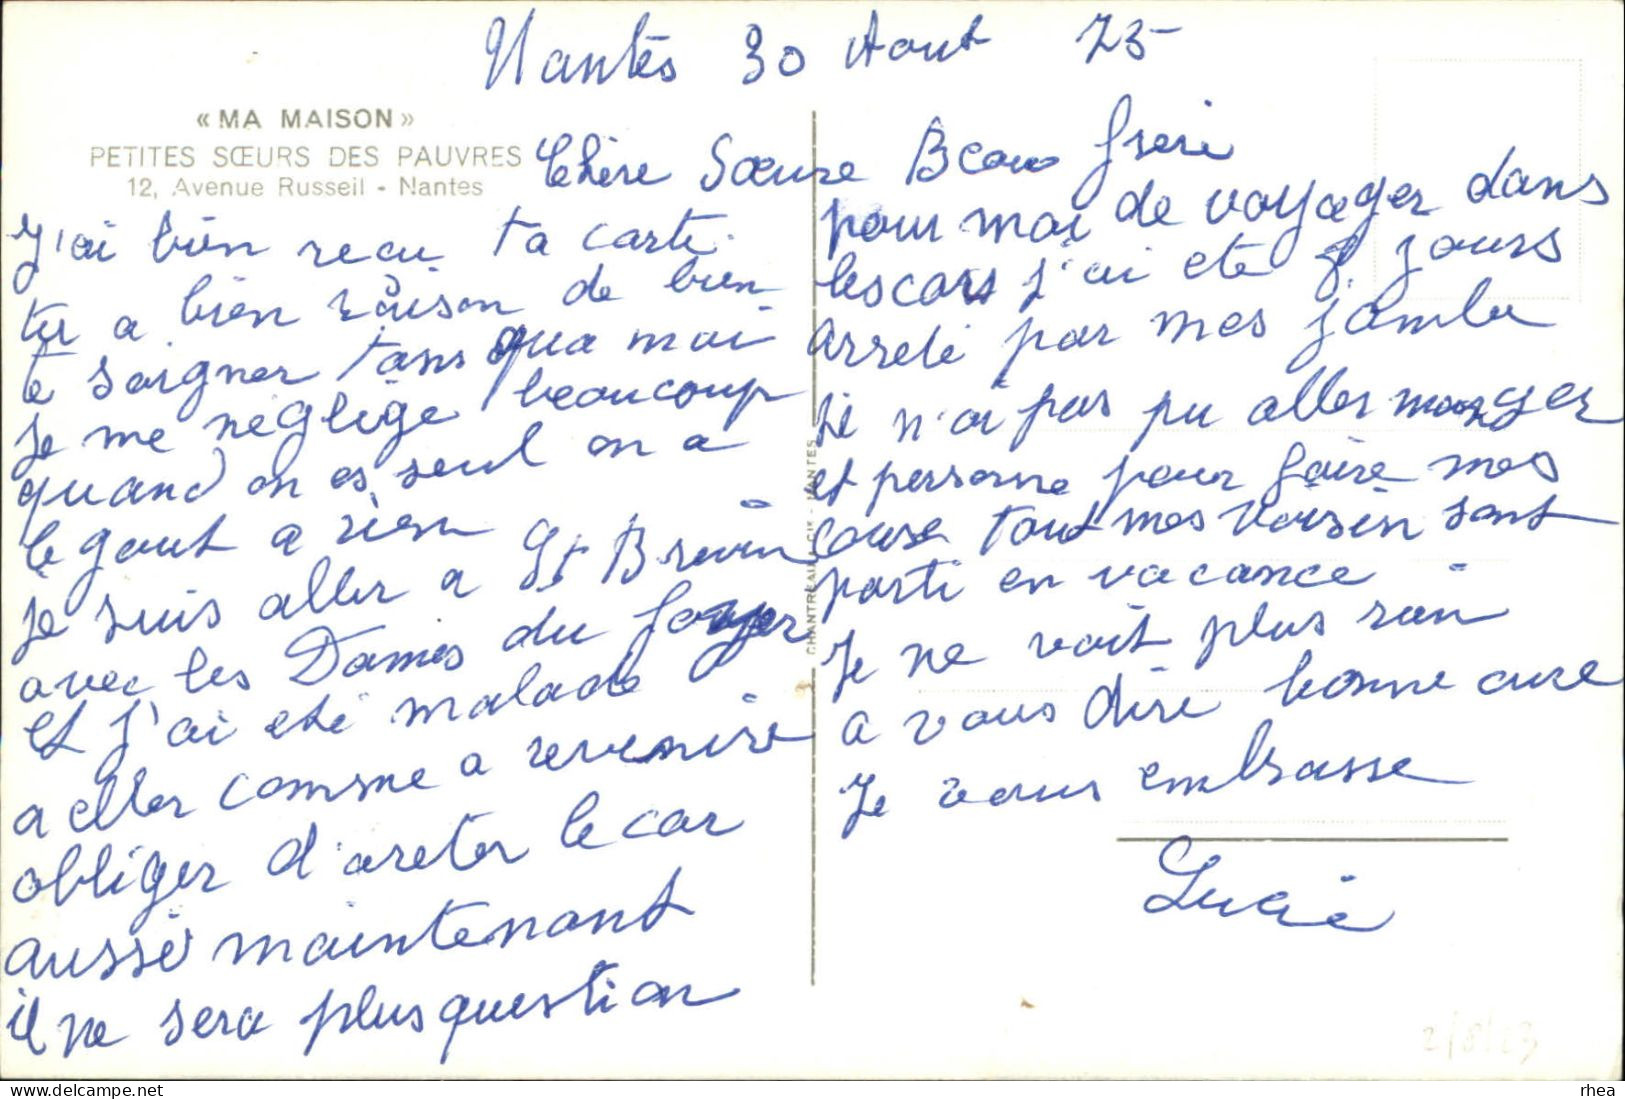 Nantes 30 Aout 73
« MA MAISON »
PETITES SŒURS DES PAUVRES
12, Avenue Russeil - Nantes
Chère Sœure Beau frère
J'ai bien recu ta carte.
tu a bien raison de bien
te soigner tans qua moi
je me néglige beaucoup
quand on es seul on a
le gout a rien
je suis aller a St Brevin
avec les Dames du foyer
et j'ai eté malade
a eller comme a revenire
obliger d'areter le car
aussè maintenant
il ne sera plus question
pour moi de voyager dans
les cars j'ai eté 8 jours
arreté par mes jambe
je n'ai pas pu aller manger
et personne pour faire mes
course tout mes voisin sont
parti en vacance
Je ne voit plus rien
a vous dire bonne cure
Je vous embrasse
Lucie
CHANTREAU & Cie - NANTES
2/8/23
rhea